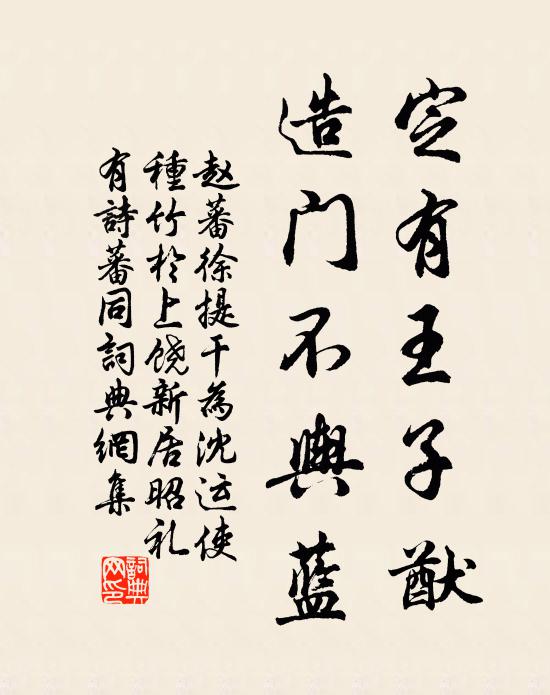 定有王子猷
造门不舆蓝
赵蕃徐提干为沈运使
種竹於上饶新居昭礼
有詩蕃同詞典網集
詞典网印